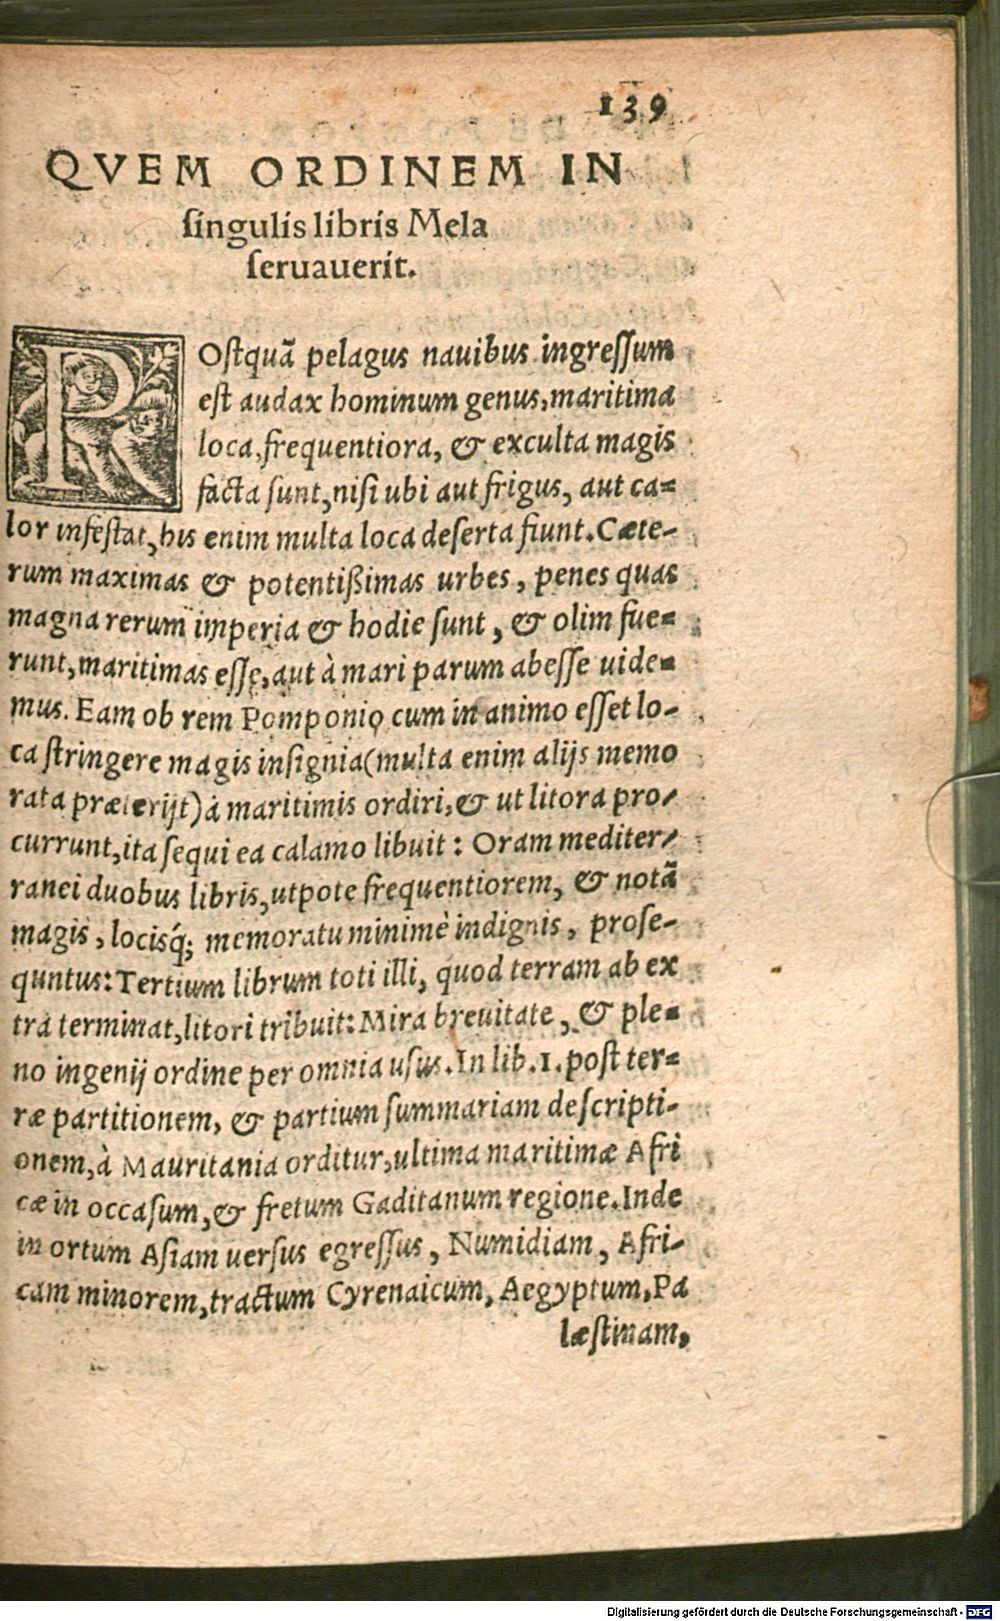 139
QVEM ORDINEM IN
singulis libris Mela
seruauerit.
ROstquã pelagus nauibus ingressum
est audax hominum genus, maritima
loca, frequentiora, & exculta magis
facta sunt, nisi ubi aut frigus, aut ca=
lor infestat, his enim multa loca deserta fiunt. Cæte-
rum maximas & potentißimas urbes, penes quas
magna rerum imperia & hodie sunt, & olim fue=
runt, maritimas esse, aut à mari parum abesse uide=
mus. Eam ob rem Pomponio cum in animo esset lo-
ca stringere magis insignia (multa enim alijs memo
rata præterijt) à maritimis ordiri, & ut litora pro-
currunt, ita sequi ea calamo libuit: Oram mediter-
ranei duobus libris, utpote frequentiorem, & notã
magis, locisq́; memoratu minimè indignis, prose-
quntus: Tertium librum toti illi, quod terram ab ex
tra terminat, litori tribuit: Mira breuitate, & ple=
no ingenij ordine per omnia usus. In lib. 1. post ter=
ræ partitionem, & partium summariam descripti-
onem, à Mauritania orditur, ultima maritimæ Afri
cæ in occasum, & fretum Gaditanum regione. Inde
in ortum Asiam uersus egressus, Numidiam, Afri-
cam minorem, tractum Cyrenaicum, Aegyptum, Pa
læstinam,
Digitalisierung gefördert durch die Deutsche Forschungsgemeinschaft - DFG